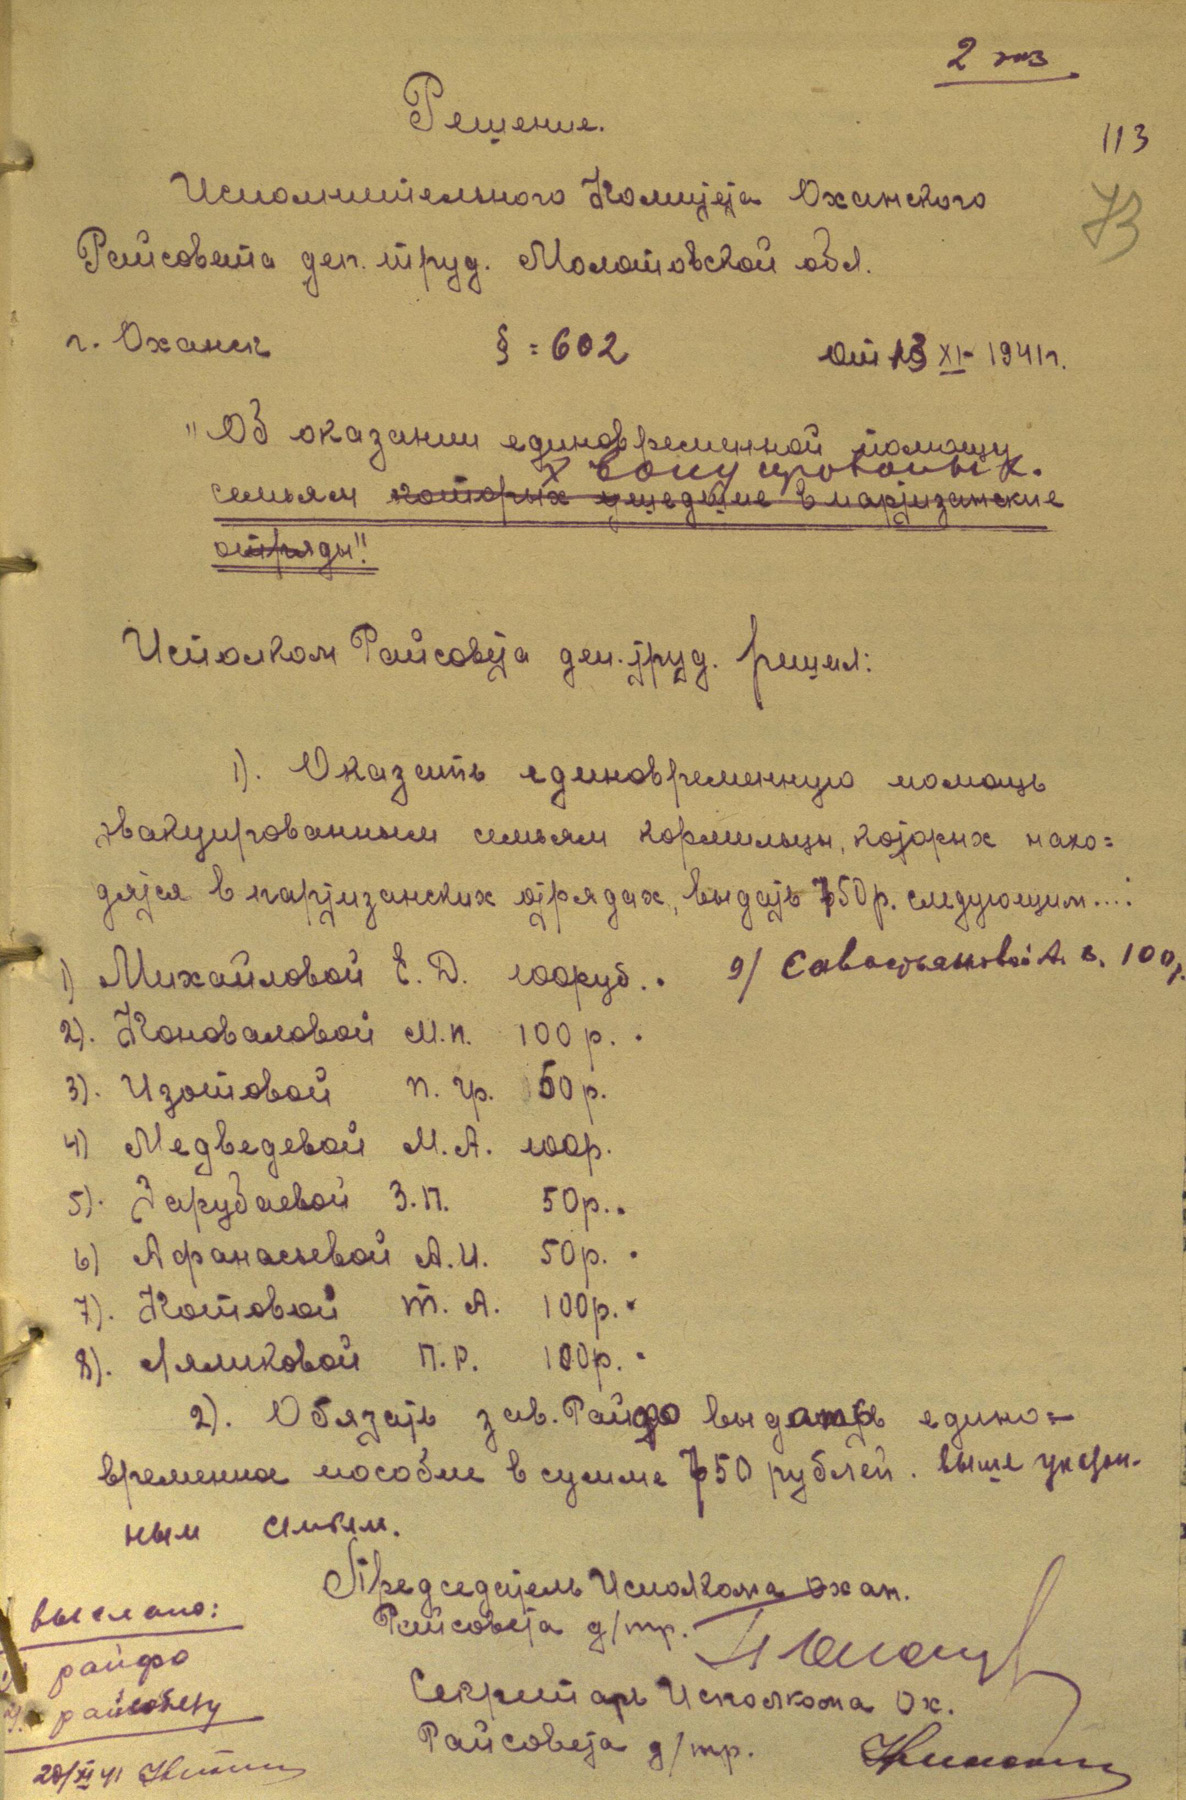 2 экз
113
73
Решение.
Исполнительного Комитета Оханского
Райсовета деп. труд. Молотовской обл.
г. Оханск § = 602 от 13 XI - 1941 г.
"Об оказании единовременной помощи
семьям которых ушедшие в партизанские
отряды"
Исполком Райсовета деп. труд. решил:
1). Оказать единовременную помощь
эвакуированным семьям кормильцы, которых нахо=
дятся в партизанских отрядах, выдать 750 р. следующим...:
1) Михайловой Е. Д. 100 руб. . 9/ Савостьяновой А. в. 100 р.
2). Коноваловой М. П. 100 р. .
3). Изотовой П. Гр. 50 р.
4) Медведевой М. А. 100 р.
5). Зарубаевой З. П. 50 р. .
6) Афанасьевой А. И. 50 р. .
7). Котовой Т. А. 100 р. .
8). Лямковой П. Р. 100 р. .
2). Обязать зав. Райфо выдать едино=
временное пособие в сумме 750 рублей. выше указан-
ным семьям.
Председатель Исполкома Охан.
Райсовета д/тр.
Секретарь Исполкома Ох.
Райсовета д/тр.
выслано:
райфо
райсобесу
20/XI 41